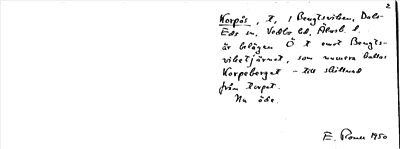 2
Korpås, t, i Bengtsviken, Dals-
Eds sn, Vedbo hd, Älvsb. l.
är belägen Ö t emot Bengts-
vikstjärnet, som numera kallas
Korpeberget - till skillnad
från torpet.
Nu öde.
E. 1950